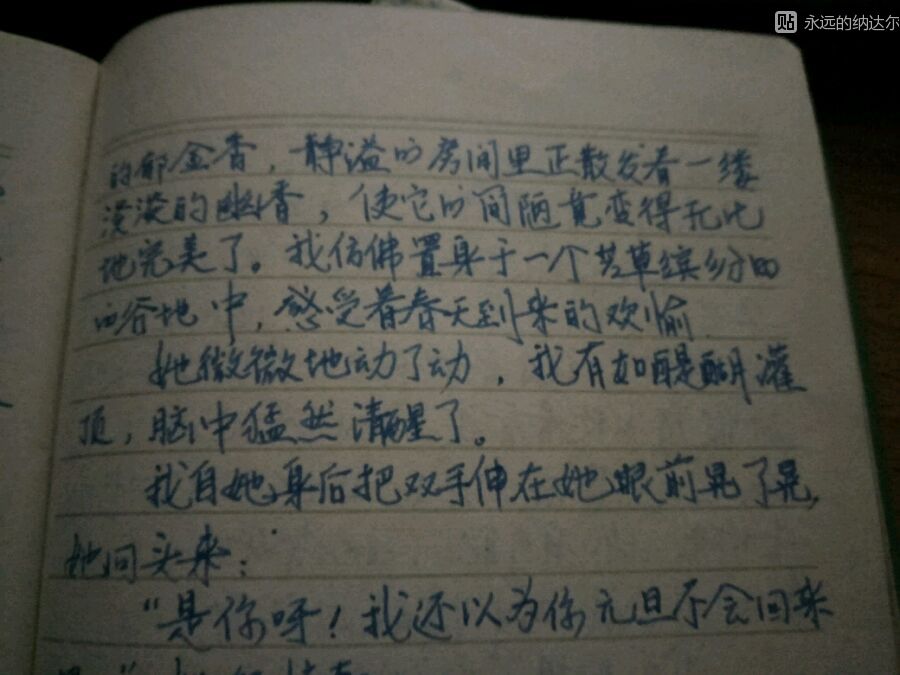 永远的纳达尔
的郁金香，静谧的房间里正散发着一缕
淡淡的幽香，使它的简陋竟变得无比
地完美了。我仿佛置身于一个芳草缤纷的
山谷地中，感受着春天到来的欢愉
她微微地动了动，我有如醍醐灌
顶，脑中猛然清醒了。
我自她身后把双手伸在她眼前晃了晃，
她回头来：
“是你呀！我还以为你元旦不会回来